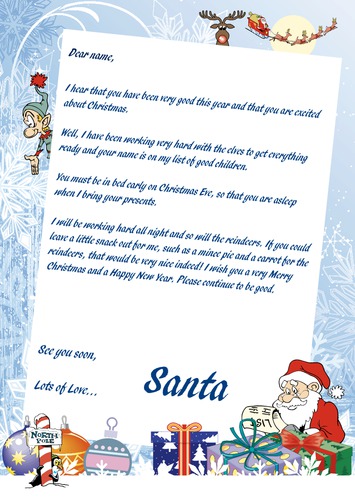 Dear name,
I hear that you have been very good this year and that you are excited
about Christmas.
Well, I have been working very hard with the elves to get everything
ready and your name is on my list of good children.
You must be in bed early on Christmas Eve, so that you are asleep
when I bring your presents.
I will be working hard all night and so will the reindeers. If you could
leave a little snack out for me, such as a mince pie and a carrot for the
reindeers, that would be very nice indeed! I wish you a very Merry
Christmas and a Happy New Year. Please continue to be good.
See you soon,
Lots of Love...
Santa
LIST
NORTH
POLE